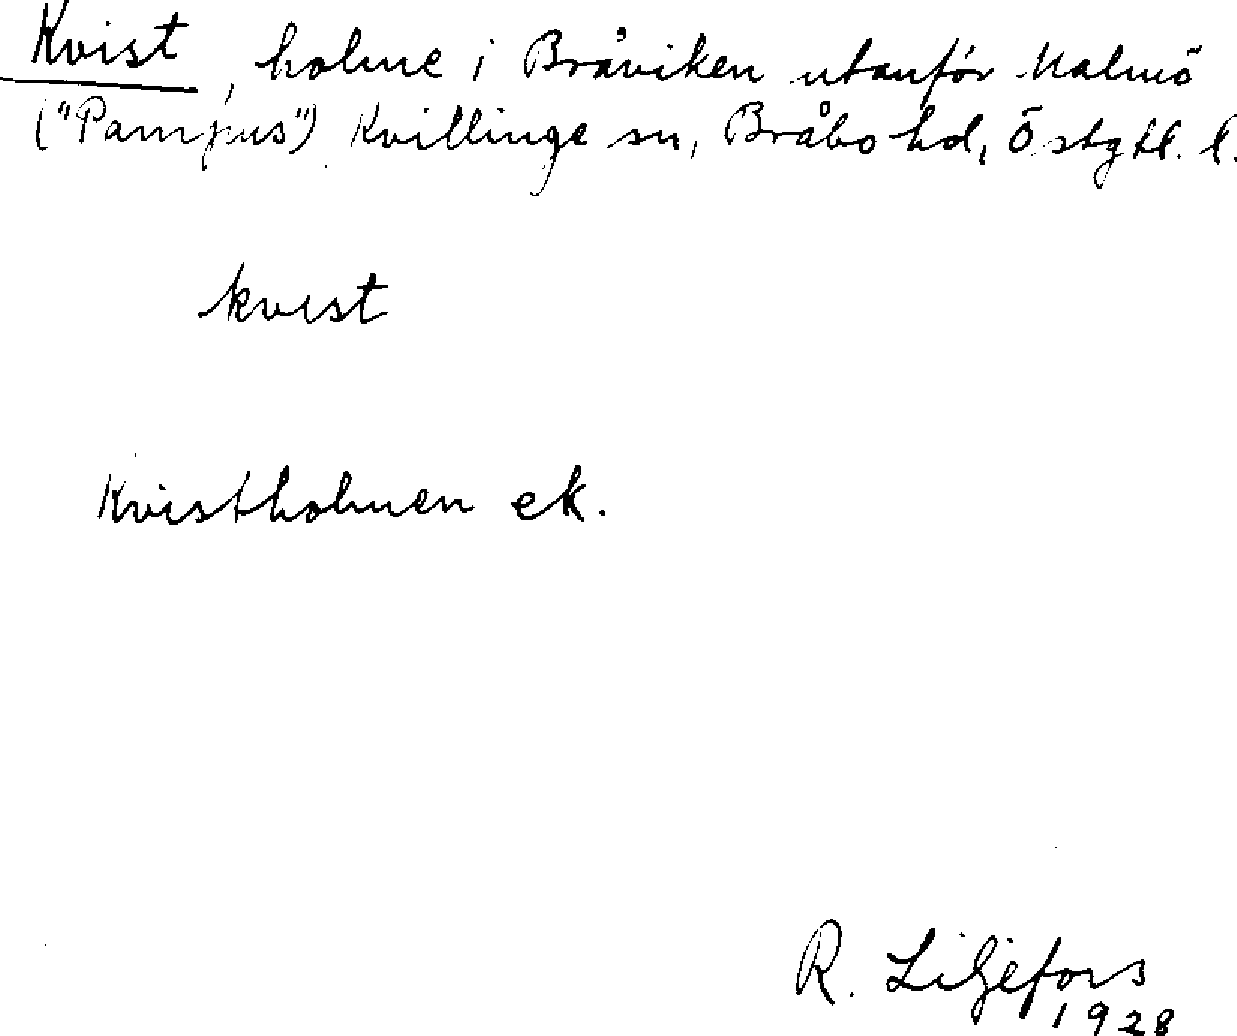 Kvist, holme i Bråviken utanför Malmö
("Pampus") Kvillinge sn, Bråbo hd, Östgtl. l.
kvist
Kvistholmen ek.
R. Liljefors
1928